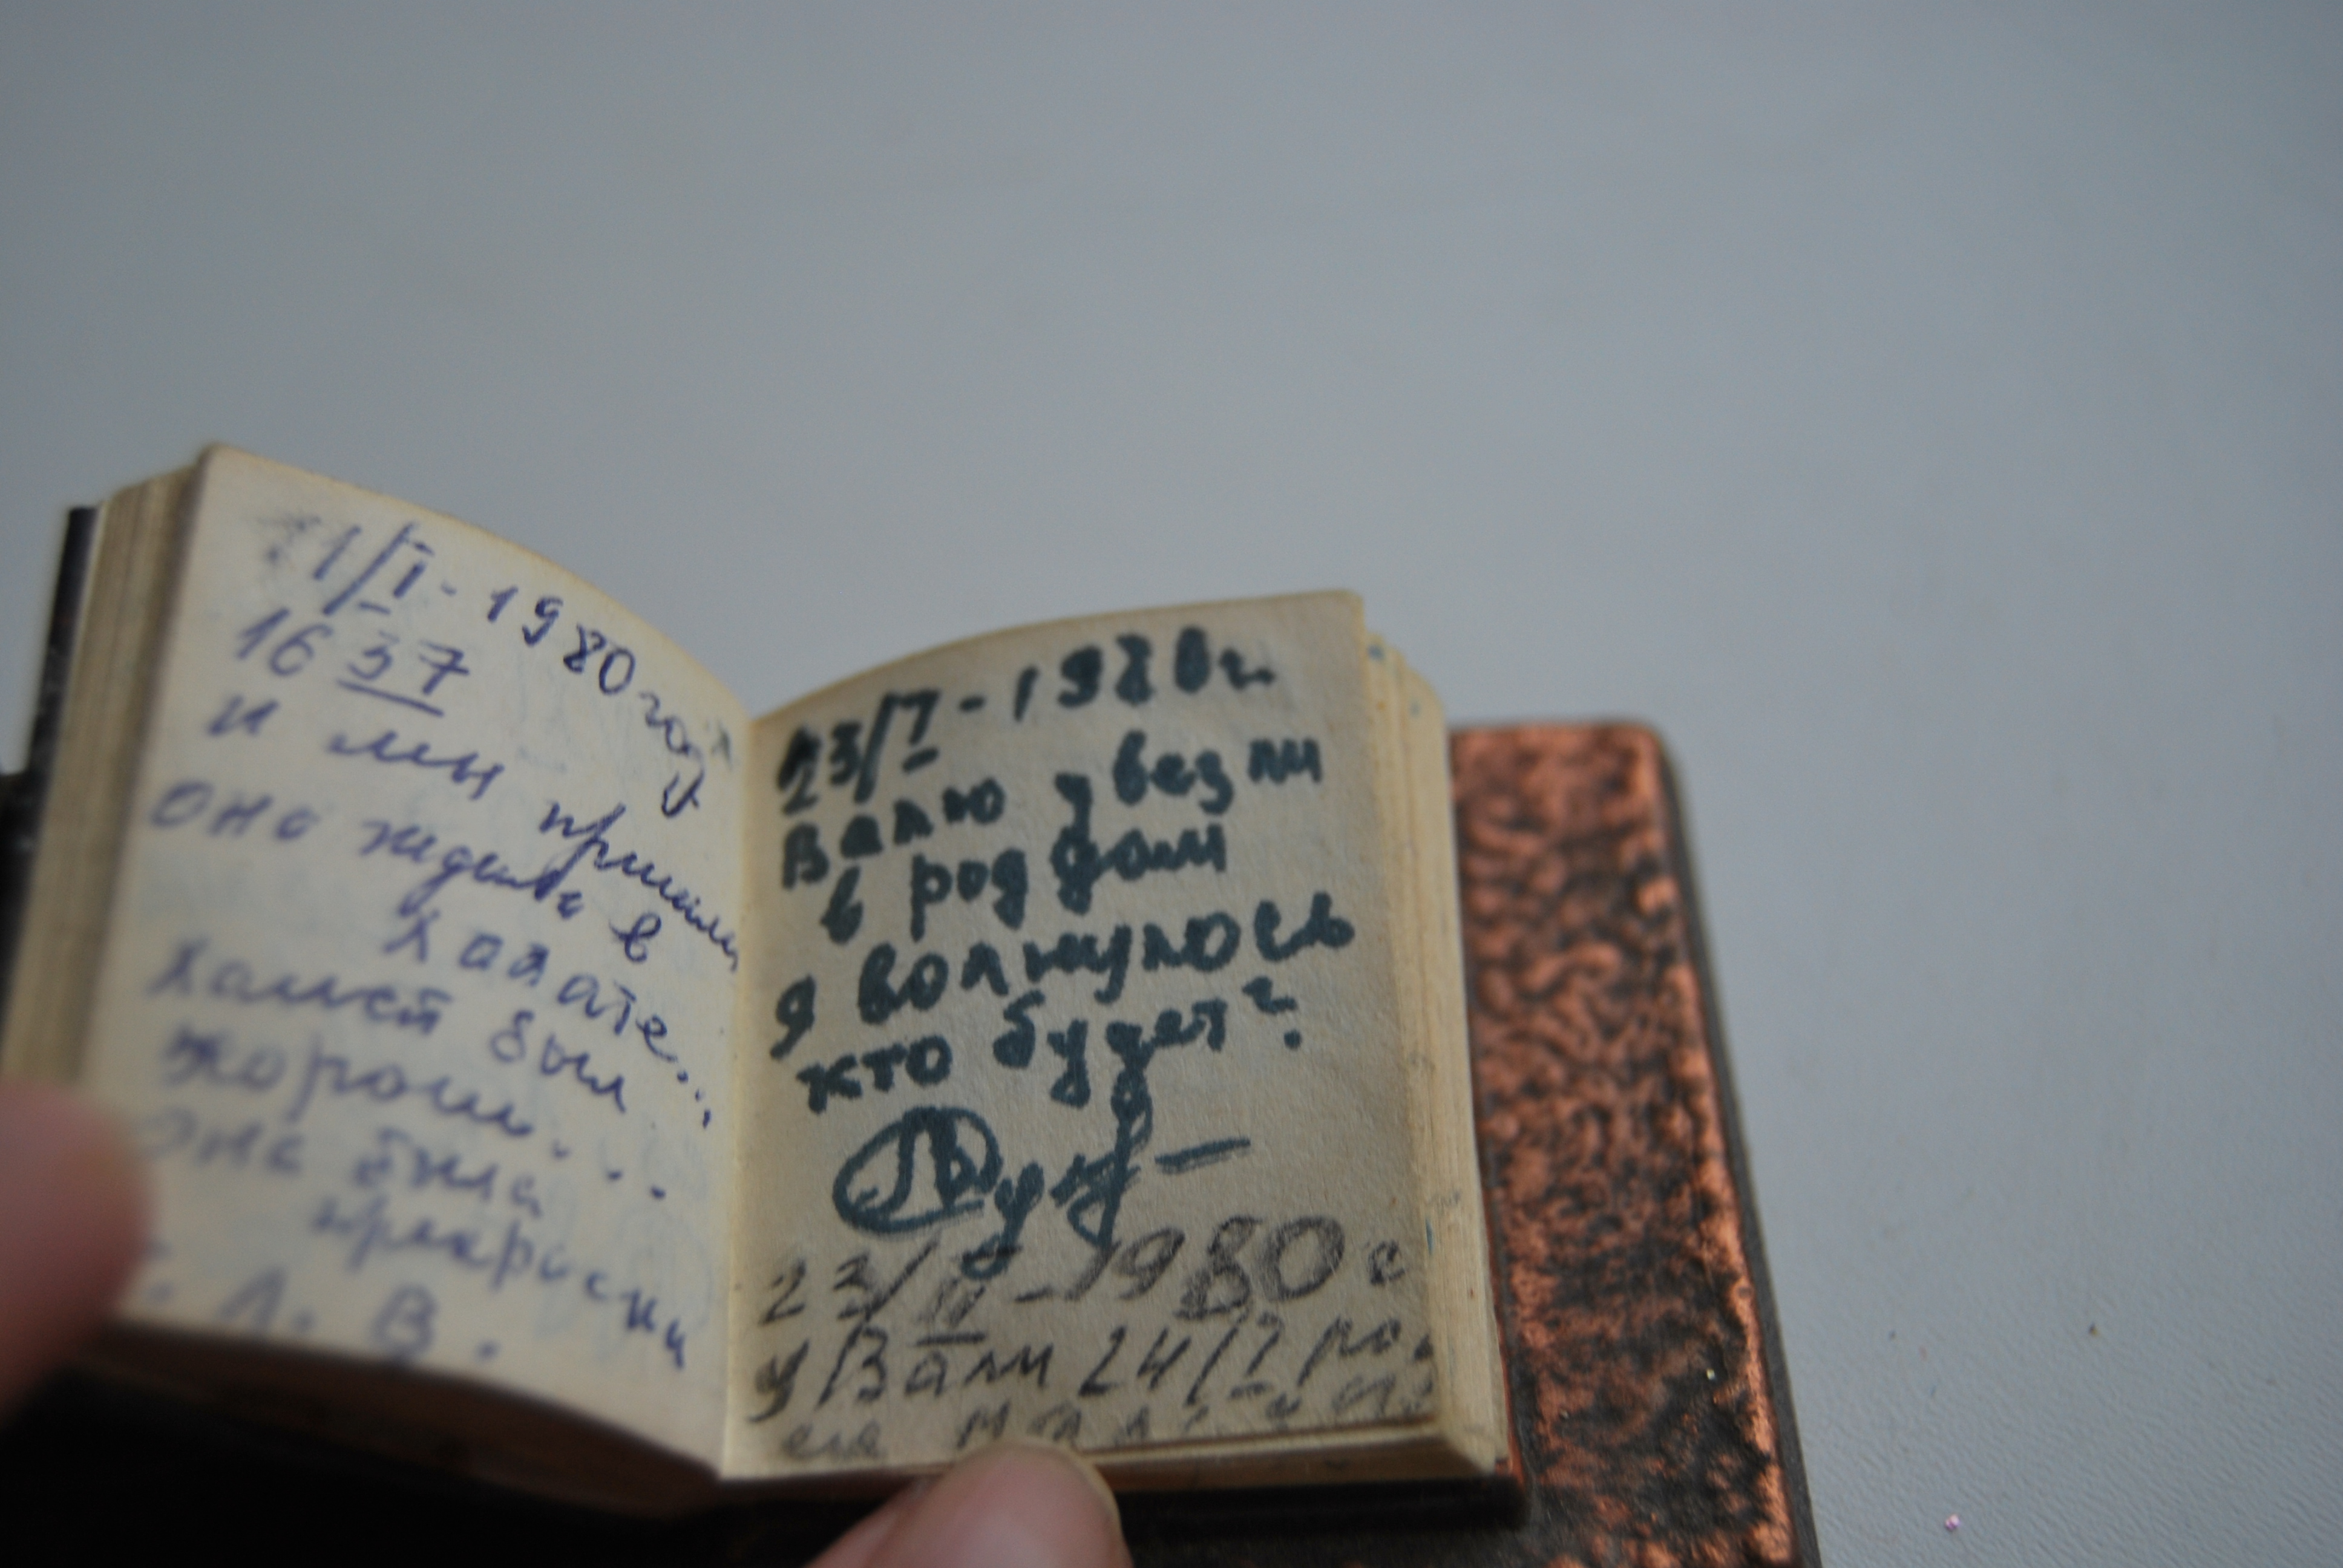 1/I - 1980 год
16 37
и мы пришли
она ждала в
халате...
был
хорош...
она была
прекрасна
Л. В.
23/I - 1980 г.
Валю увезли
в род дом
я волнуюсь
кто будет?
23/II - 1980 г
у Вали 24/I